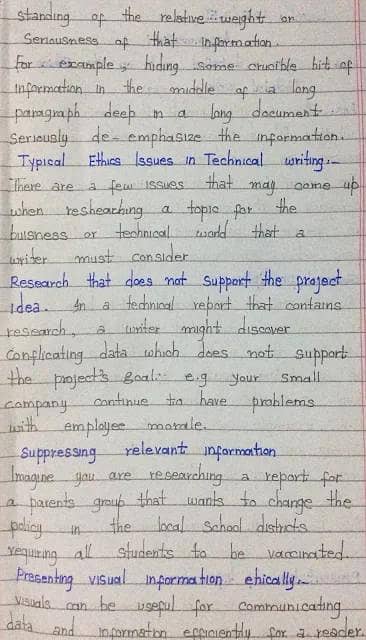 standing of the relative weight or
Seriousness of that information.
For example, hiding some crucible bit of
information in the middle of a long
paragraph deep in a long document
Seriously de-emphasize the information.
Typical Ethics Issues in Technical writing:-
There are a few issues that may come up
when reshearhing a topic for the
buisness or technical world that a
writer must consider
Research that does not support the project
idea. In a technical report that contains
research, a writer might discover
Conflicating data which does not support
the project's goal. e.g your small
company continue to have problems
with employee morale.
Suppressing relevant information
Imagine you are researching a report for
a parents group that wants to change the
policy in the local School districts
requiring all students to be vaccinated.
Presenting visual information ehically:-
visuals can be useful for communicating
data and information efficiently for a reader.